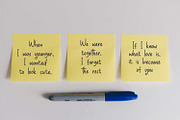 When
I was younger,
I wanted
to look cute.
We were
together.
I forget
the rest.
If I know
what love is,
it is because
of you